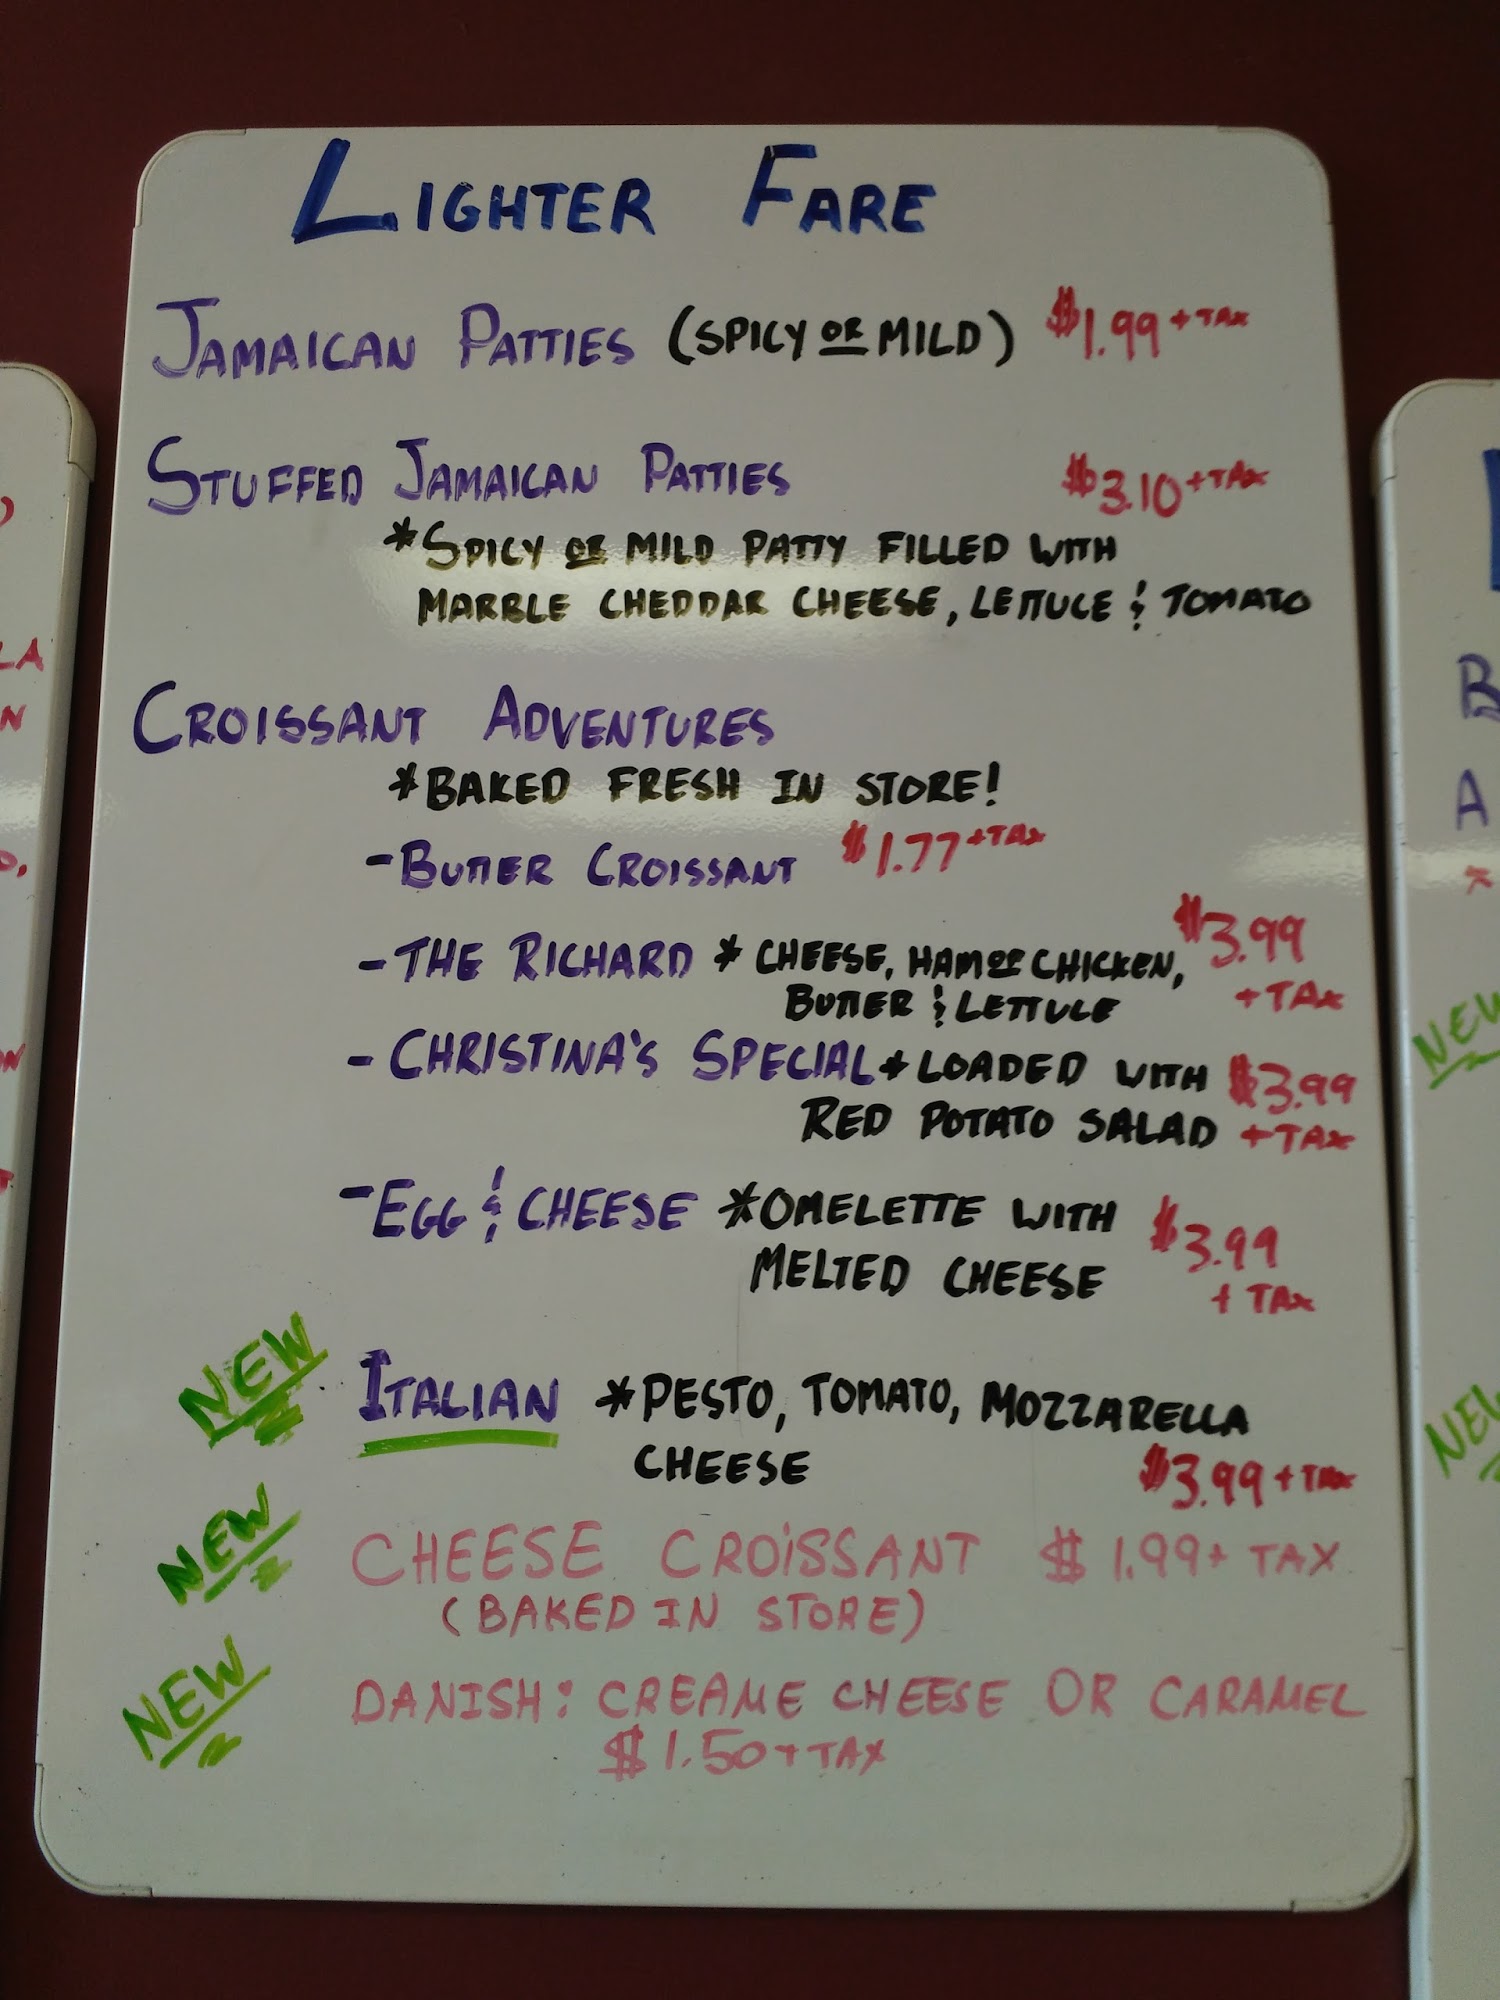 LIGHTER FARE
JAMAICAN PATTIES (SPICY OR MILD) $1.99 + TAX
STUFFED JAMAICAN PATTIES $3.10 + TAX
*SPICY OR MILD PATTY FILLED WITH
MARBLE CHEDDAR CHEESE, LETTUCE & TOMATO
CROISSANT ADVENTURES
*BAKED FRESH IN STORE!
-BUTTER CROISSANT $1.77 + TAX
-THE RICHARD *CHEESE, HAM OR CHICKEN, $3.99
BUTTER & LETTUCE + TAX
-CHRISTINA'S SPECIAL *LOADED WITH $3.99
RED POTATO SALAD + TAX
-EGG & CHEESE *OMELETTE WITH $3.99
MELTED CHEESE + TAX
NEW ITALIAN *PESTO, TOMATO, MOZZARELLA
CHEESE $3.99 + TAX
NEW CHEESE CROISSANT $1.99 + TAX
(BAKED IN STORE)
NEW DANISH: CREAME CHEESE OR CARAMEL
$1.50 + TAX
NEW
NEW